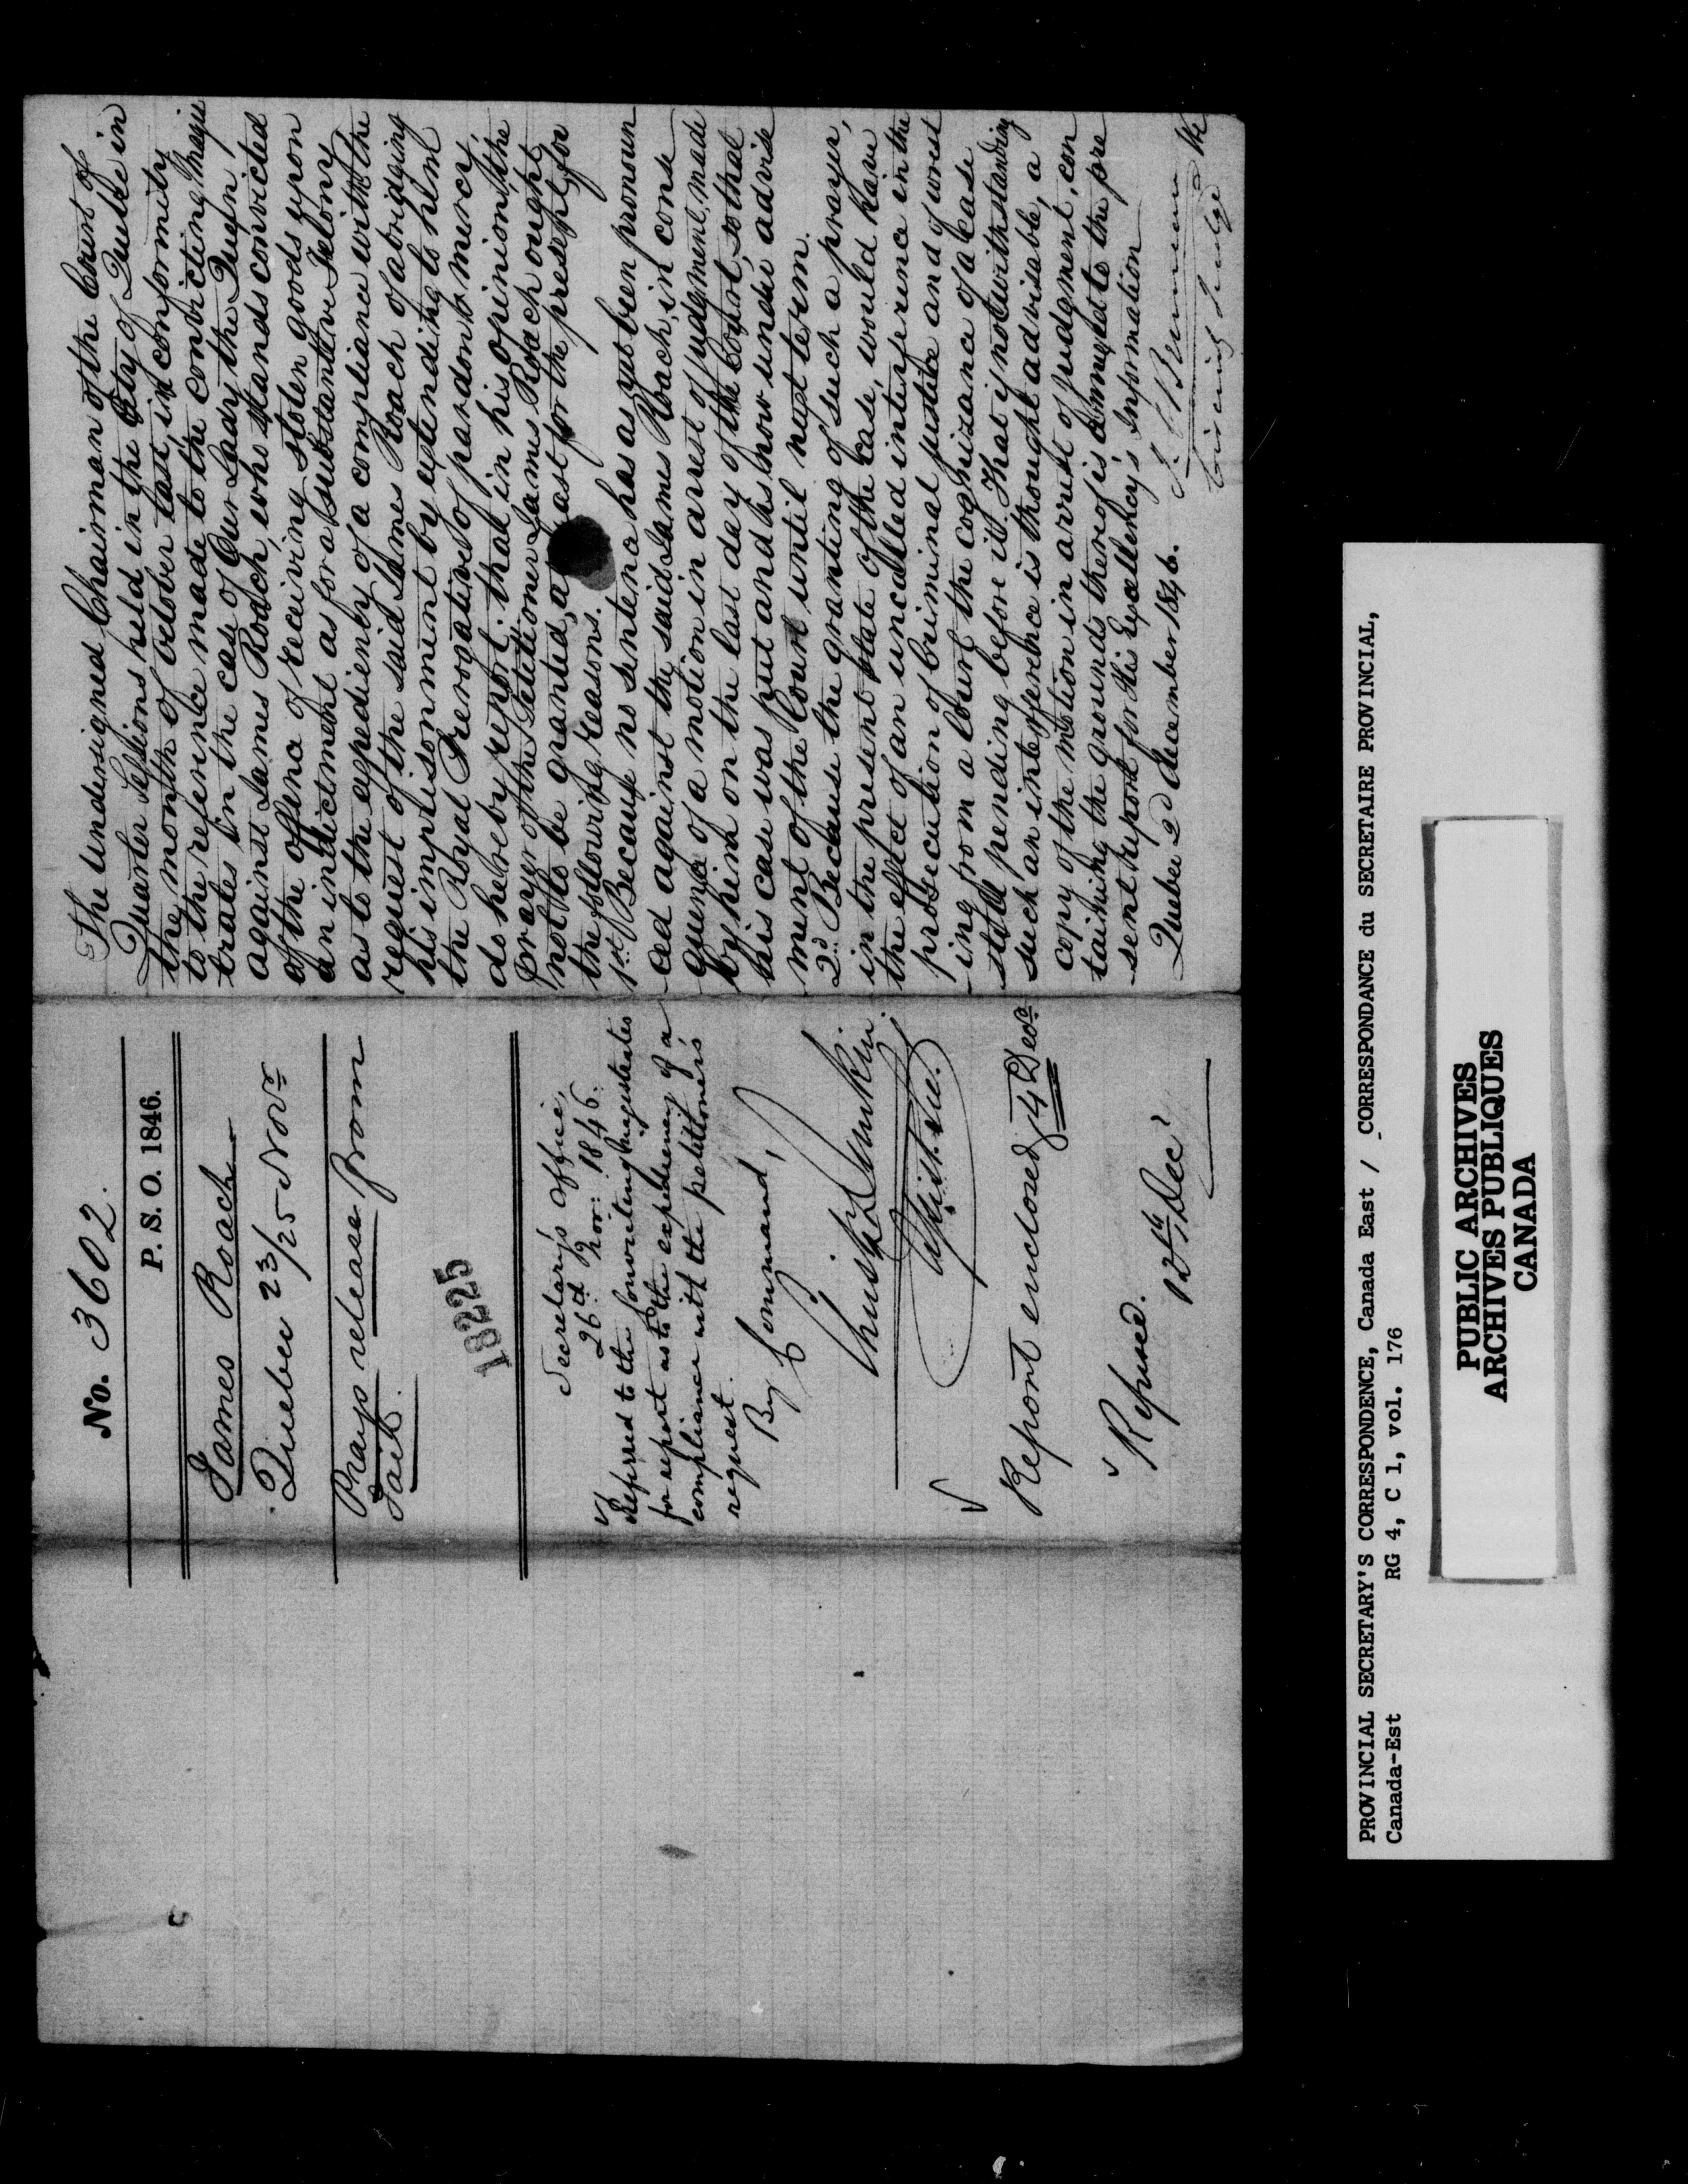 No. 3602.
P. S. O. 1846.
James Roach
Quebec 23/25 Novr
Prays release from
Jail.
18225
Secretary's Office,
26th Nov: 1846.
Referred to the convicting magistrates
for report as to the expediency of a
compliance with the petitioner's
request.
By Command,
Christ Dunkin.
Assist. Sec.
Report enclosed 4 Decr
Refused.
12th Decr
The Undersigned Chairman of the Court of
Quarter Sessions held in the City of Quebec in
the month of October last, in conformity
to the reference made to the convicting Magis
trates in the case of Our Lady the Queen,
against James Roach, who stands convicted
of the offence of receiving stolen goods upon
an indictment as for a substantive Felony
as to the expediency of a compliance with the
request of the said James Roach of abridging
his imprisonment by extending to him
the Royal Prerogative of pardon & mercy,
do hereby report: that in his opinion, the
prayer of the Petitioner James Roach ought
not to be granted, at least for the present, for
the following reasons.
1st Because no sentence has as yet been pronoun
ced against the said James Roach, in conse
quence of a motion in arrest of judgment, made
by him on the last day of the Court, so that
his case was put and is now under advise
ment of the Court until next term.
2d Because the granting of such a prayer,
in the present state of the case, would have
the effect of an uncalled interference in the
prosecution of Criminal justice and of wrest
ing from a Court the cognizance of a case
still pending before it. That if notwithstanding
such an interference is thought adviseable, a
copy of the motion in arrest of judgment, con
taining the grounds thereof is annexed to the pre
sent report for His Excellency's Information
Quebec 2d December 1846.
Circuit Judge
PROVINCIAL SECRETARY'S CORRESPONDENCE, Canada East / CORRESPONDANCE du SECRETAIRE PROVINCIAL,
Canada-Est RG 4, C 1, vol. 176
PUBLIC ARCHIVES
ARCHIVES PUBLIQUES
CANADA